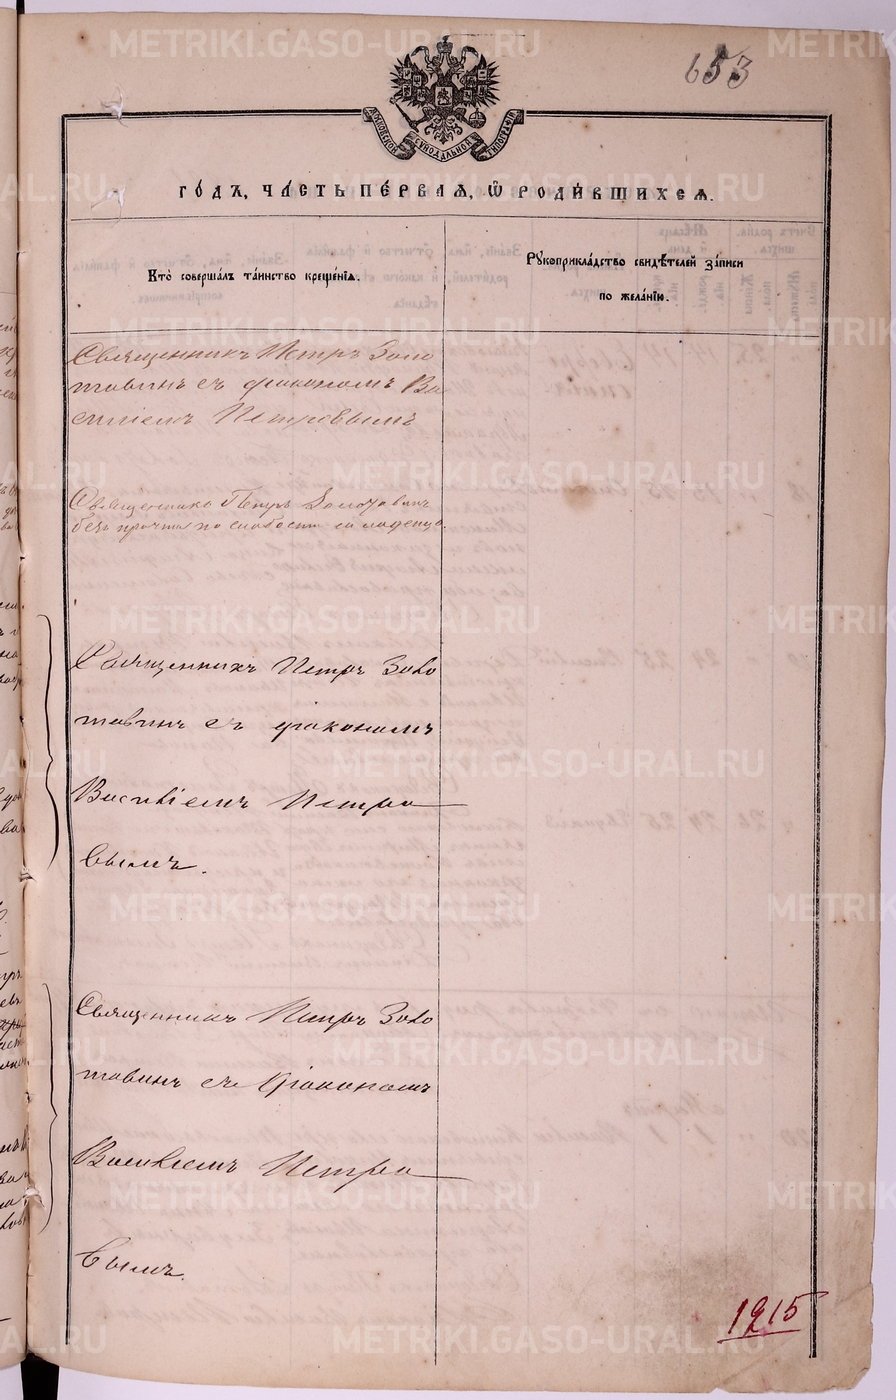 653
МОСКОВСКОЙ СѴНОДАЛЬНОЙ ТИПОГРАФІИ
ГОДЪ, ЧАСТЬ ПЕРВАЯ, Ѽ РОДИВШИХСЯ.
Кто совершалъ таинство крещенія.
Рукоприкладство свидѣтелей записи
по желанію.
Священникъ Петръ Золо
тавинъ съ діакономъ Ва
силіемъ Петровымъ
Священникъ Петръ Золотавинъ
безъ причта по слабости младенца.
Священникъ Петръ Золо
тавинъ съ діакономъ
Василіемъ Петро
вымъ.
Священникъ Петръ Золо
тавинъ съ діакономъ
Василіемъ Петро
вымъ.
1215
METRIKI.GASO-URAL.RU